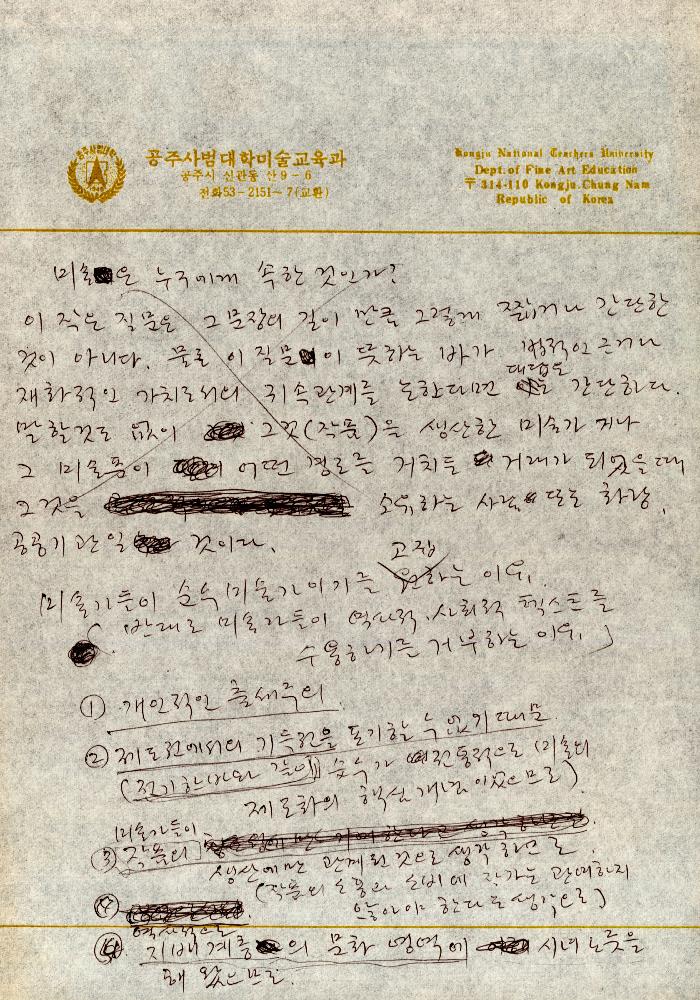 공주사범대학미술교육과
공주시 신관동 산 9 - 6
전화 53 - 2151~7 (교환)
Kongju National Teachers University
Dept. of Fine Art Education
〒314-110 Kongju. Chung Nam
Republic of Korea
미술은 누구에게 속한 것인가?
이 작은 질문은 그 문장의 길이 만큼 그렇게 짧거나 간단한
것이 아니다. 물론 이 질문이 뜻하는 바가 법적인
재화적인 가치로서의 귀속관계를 논한다면 대답은 간단하다.
말할것도 없이 그것(작품)을 생산한 미술가 거나
그 미술품이 어떤 경로를 거치든 거래가 되었을 때
그것을 소유하는 사람 또는 화랑,
공공기관일 것이다.
미술가들이 순수미술가이기를 고집하는 이유,
반대로 미술가들이 역사적, 사회적 텍스트를
수용하기를 거부하는 이유,
① 개인적인 출세주의
② 제도권에서의 기득권을 포기할 수 없기 때문
(전기한바와 같이 순수가 전통적으로 미술의
제도화의 핵심 개념이었으므로)
③ 미술가들이 작품의
생산에만 관계된 것으로 생각하므로
(작품의 소통과 소비에 작가는 관여하지
않아야 한다고 생각으로)
④ 역사적으로
지배계층의 문화 영역에 시녀노릇을
해 왔으므로.